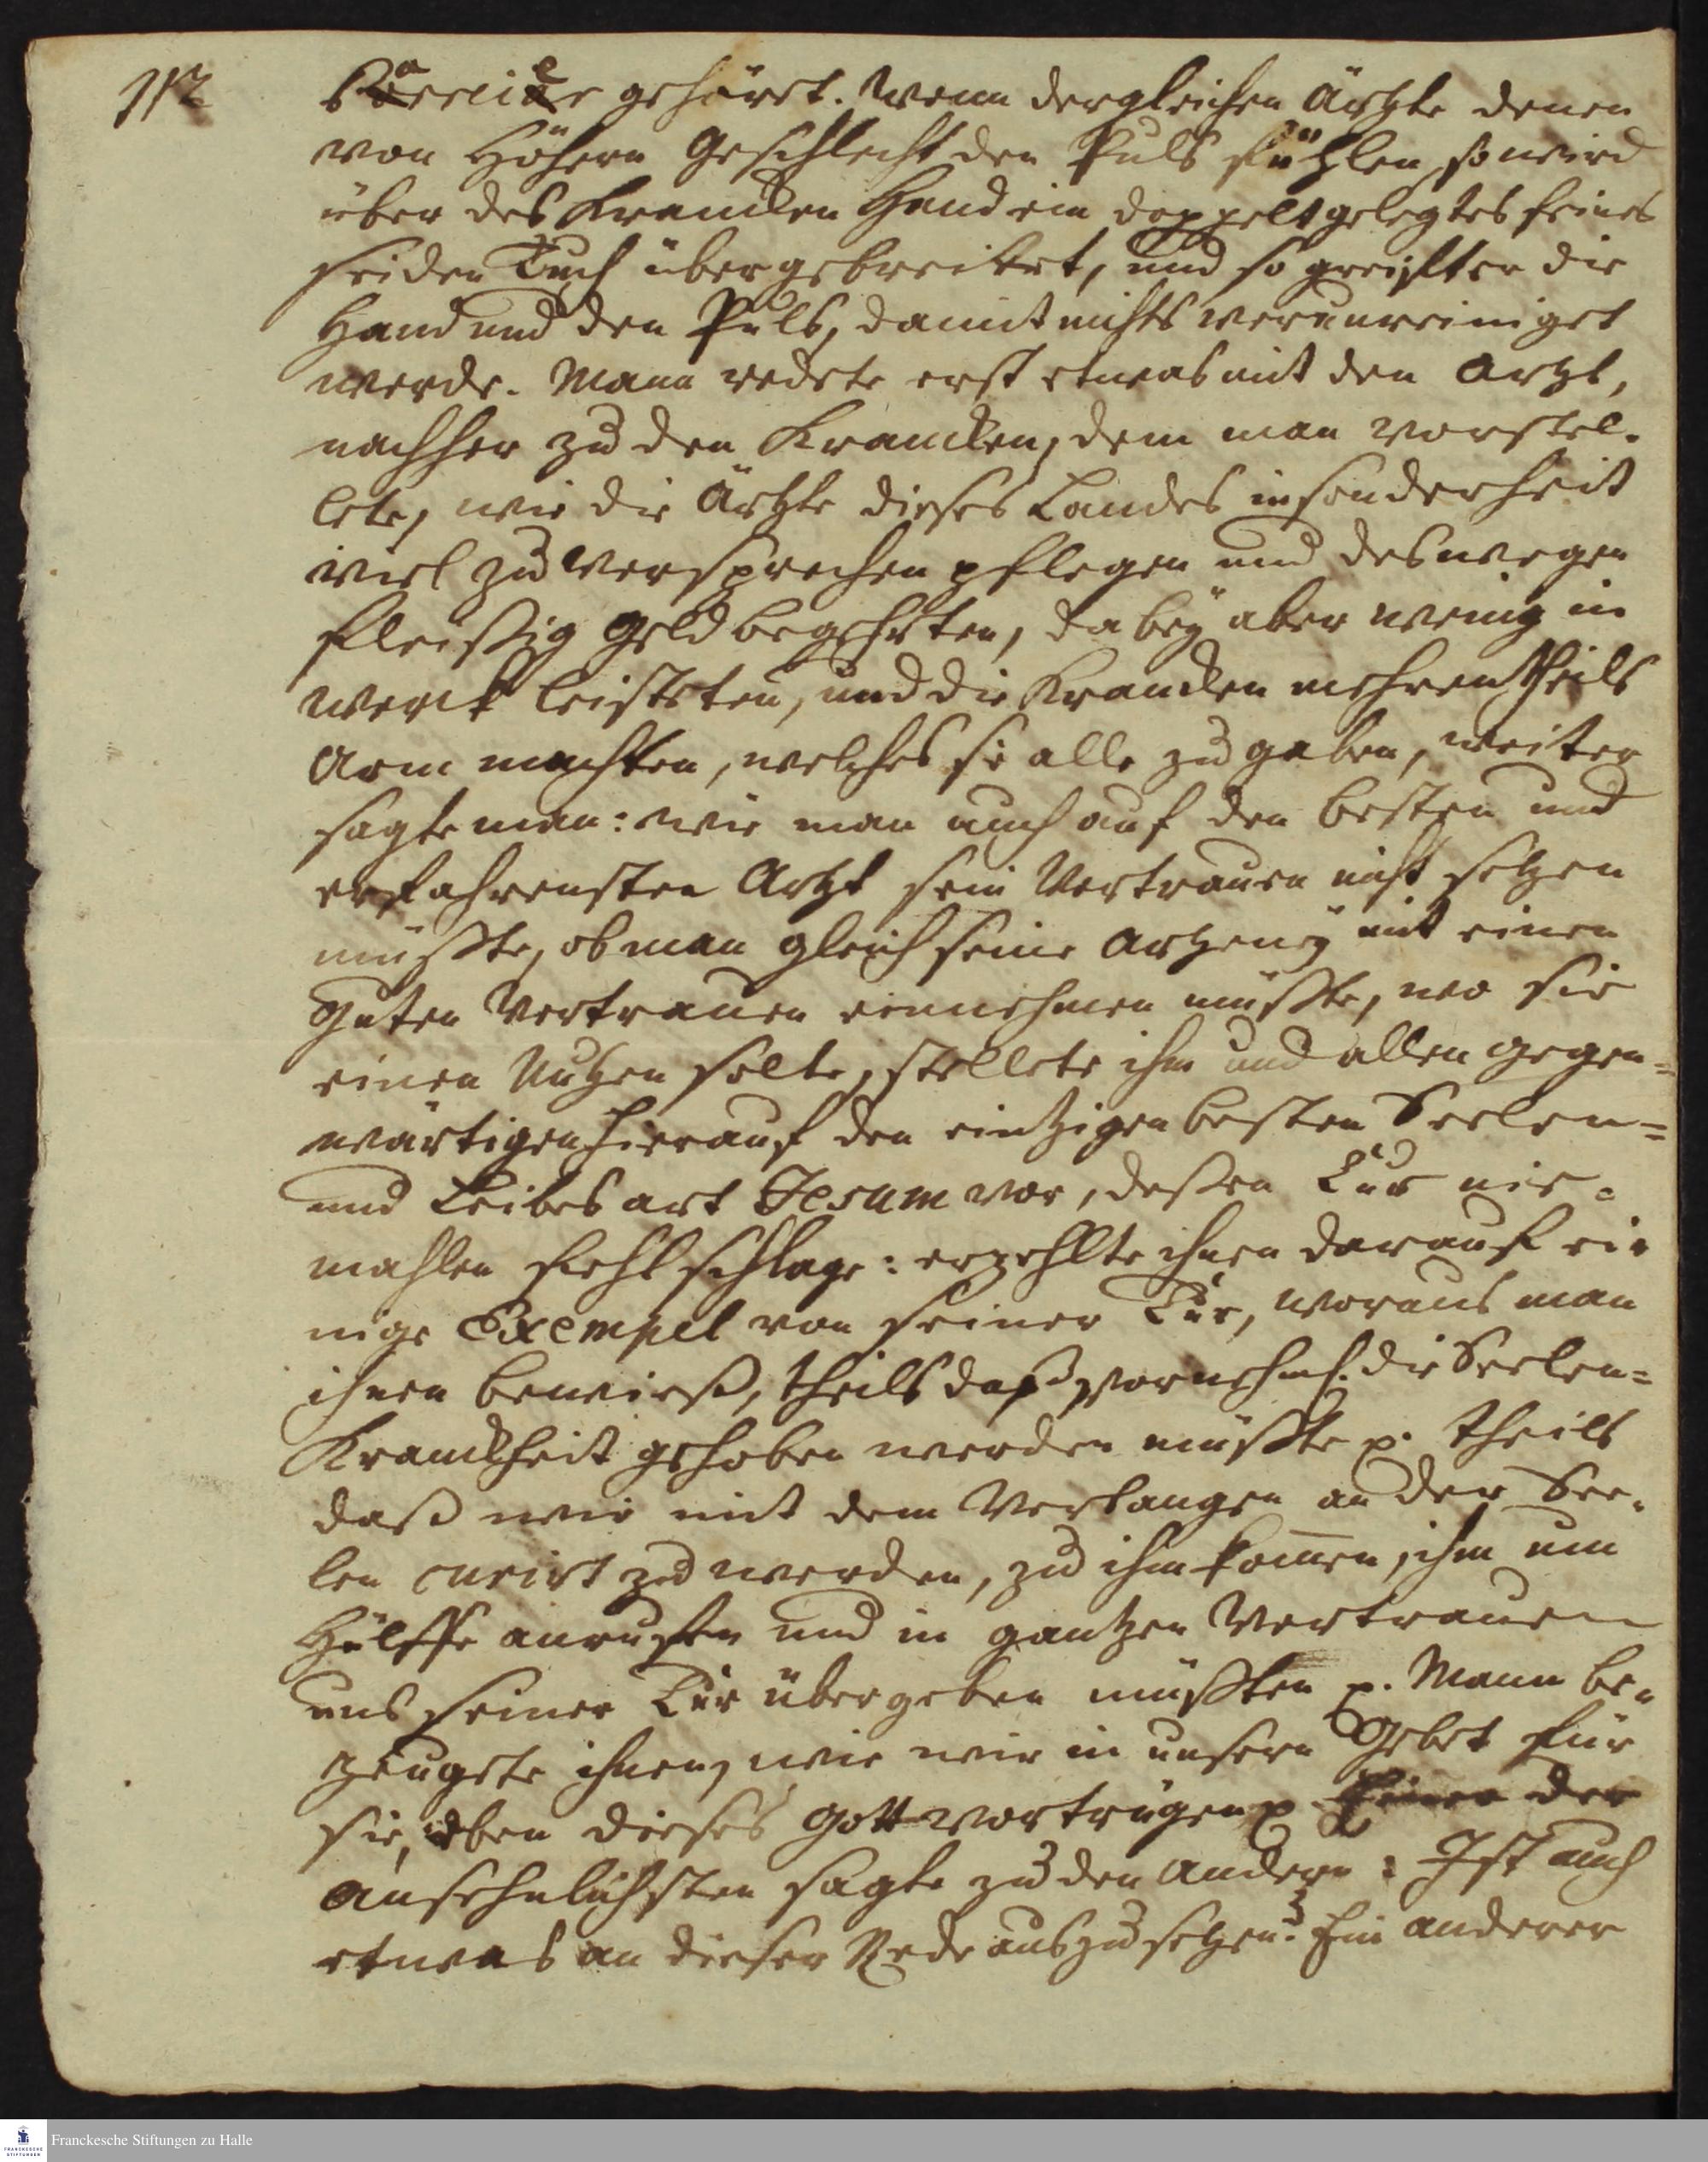 Barreier gehöret. Wenn dergleichen Ärtzte denen
von Höhern Geschlecht den Puls fühlen, so wird
über des Krancken Hand ein doppelt gelegtes feines
seiden Tuch übergebreitet, und so greifft er die
Hand und den Puls, damit nichts verunreiniget
werde. Mann redete erst etwas mit den Artzt,
nachher zu den Krancken, dem man vorstel-
lete, wie die Ärtzte dieses Landes insonderheit
viel zu versprechen pflegen und deswegen
fleissig Geld begehrten, dabeÿ aber wenig im
werck leisteten, und die Krancken mehrentheils
arm machten, welches sie alle zugaben, weiter
sagte man: wie man auch auf den besten und
erfahrensten Artzt sein Vertrauen nicht setzen
müsste, ob man gleich seine Artzeneÿ mit einen
guten Vertrauen einnehmen müsste, wo sie
einen Nutzen solte, stellete ihm und allen gegen=
wärtigen hierauf den eintzigen besten Seelen=
und Leibes art Jesum vor, dessen Cur nie-
mahlen fiehl schlage: erzehlte ihnen darauf ei-
nige Exempel von seiner Cur, woraus man
ihnen bewiess, theils dass vornehml. die Seelen=
Kranckheit gehoben werden müsste p. theils
dass wir mit dem Verlangen an der See-
len curirt zu werden, zu ihm kom̄en, ihm um
Hülffe anruffen und in gantzen Vertrauen
uns seiner Cur übergeben müssten p. Mann be-
zeugete ihnen, wie wir in unsern Gebet für
sie, eben dieses Gott vortrügen p Einer der
ansehnlichsten sagte zu den andern: Ist auch
etwas an dieser Rede auszusetzen? Ein anderer
Franckesche Stiftungen zu Halle
FRANCKESCHE
STIFTUNGEN